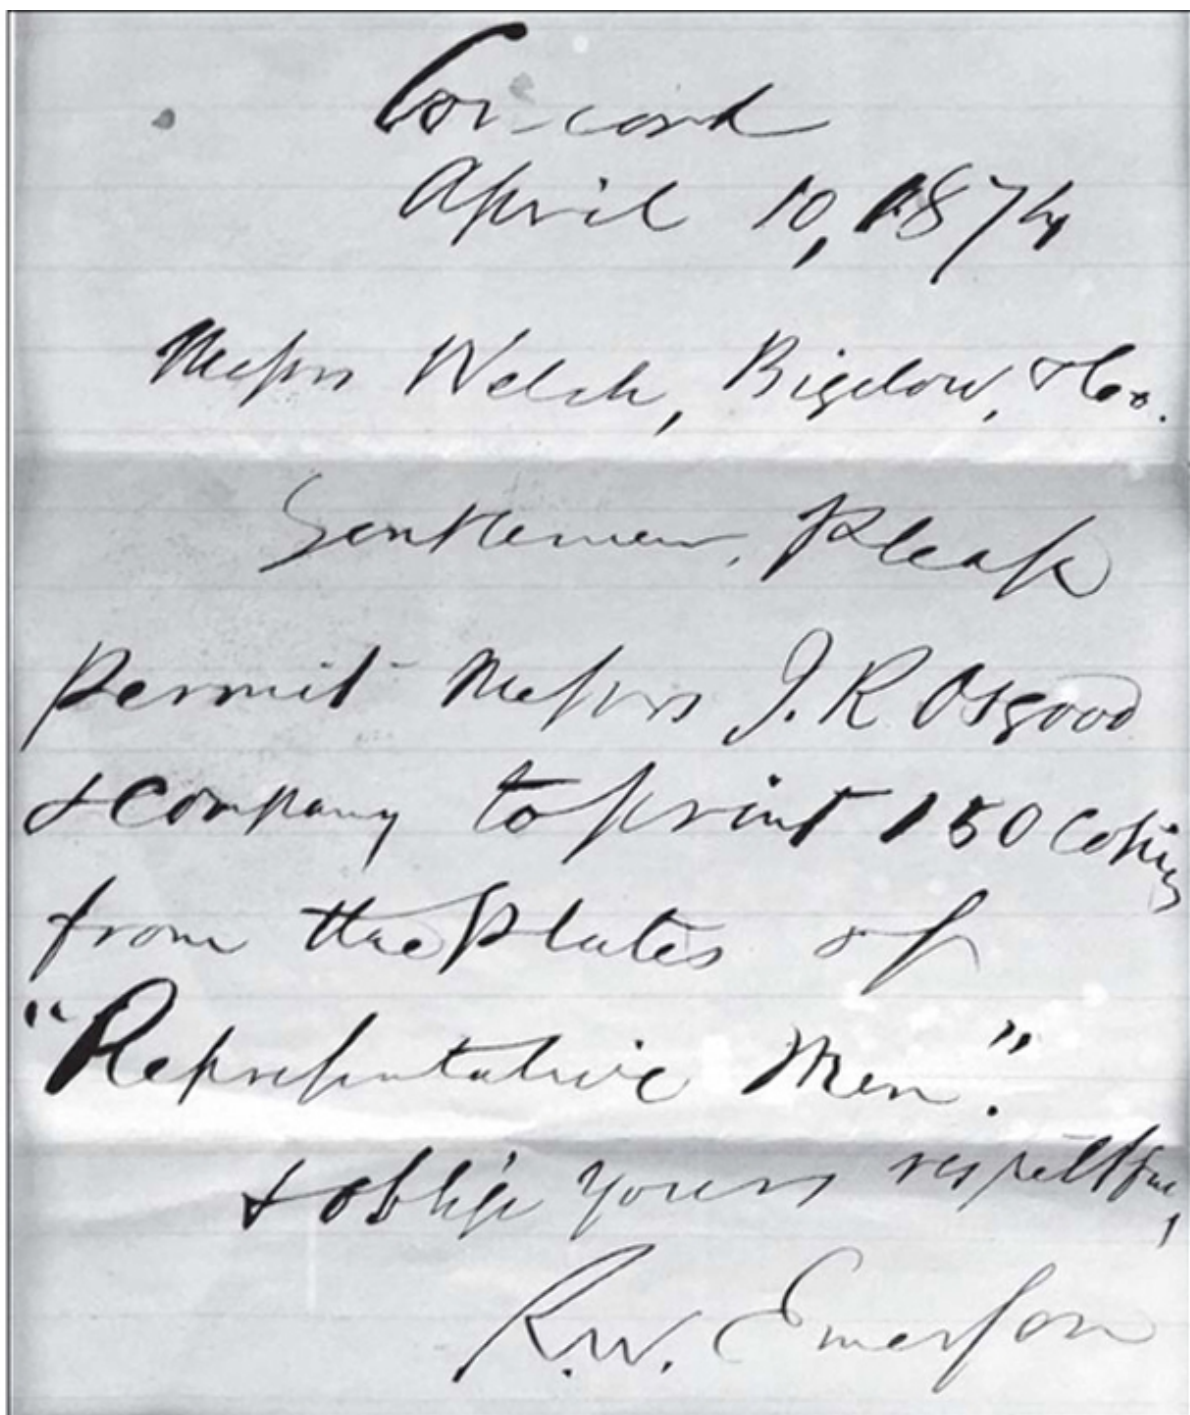 Concord
April 10, 1874
Messrs Welch, Bigelow, & Co.
Gentlemen, Please
permit Messrs J. R Osgood
& Company to print 150 Copies
from the plates of
"Representative Men."
& oblige yours respectfully,
R.W. Emerson